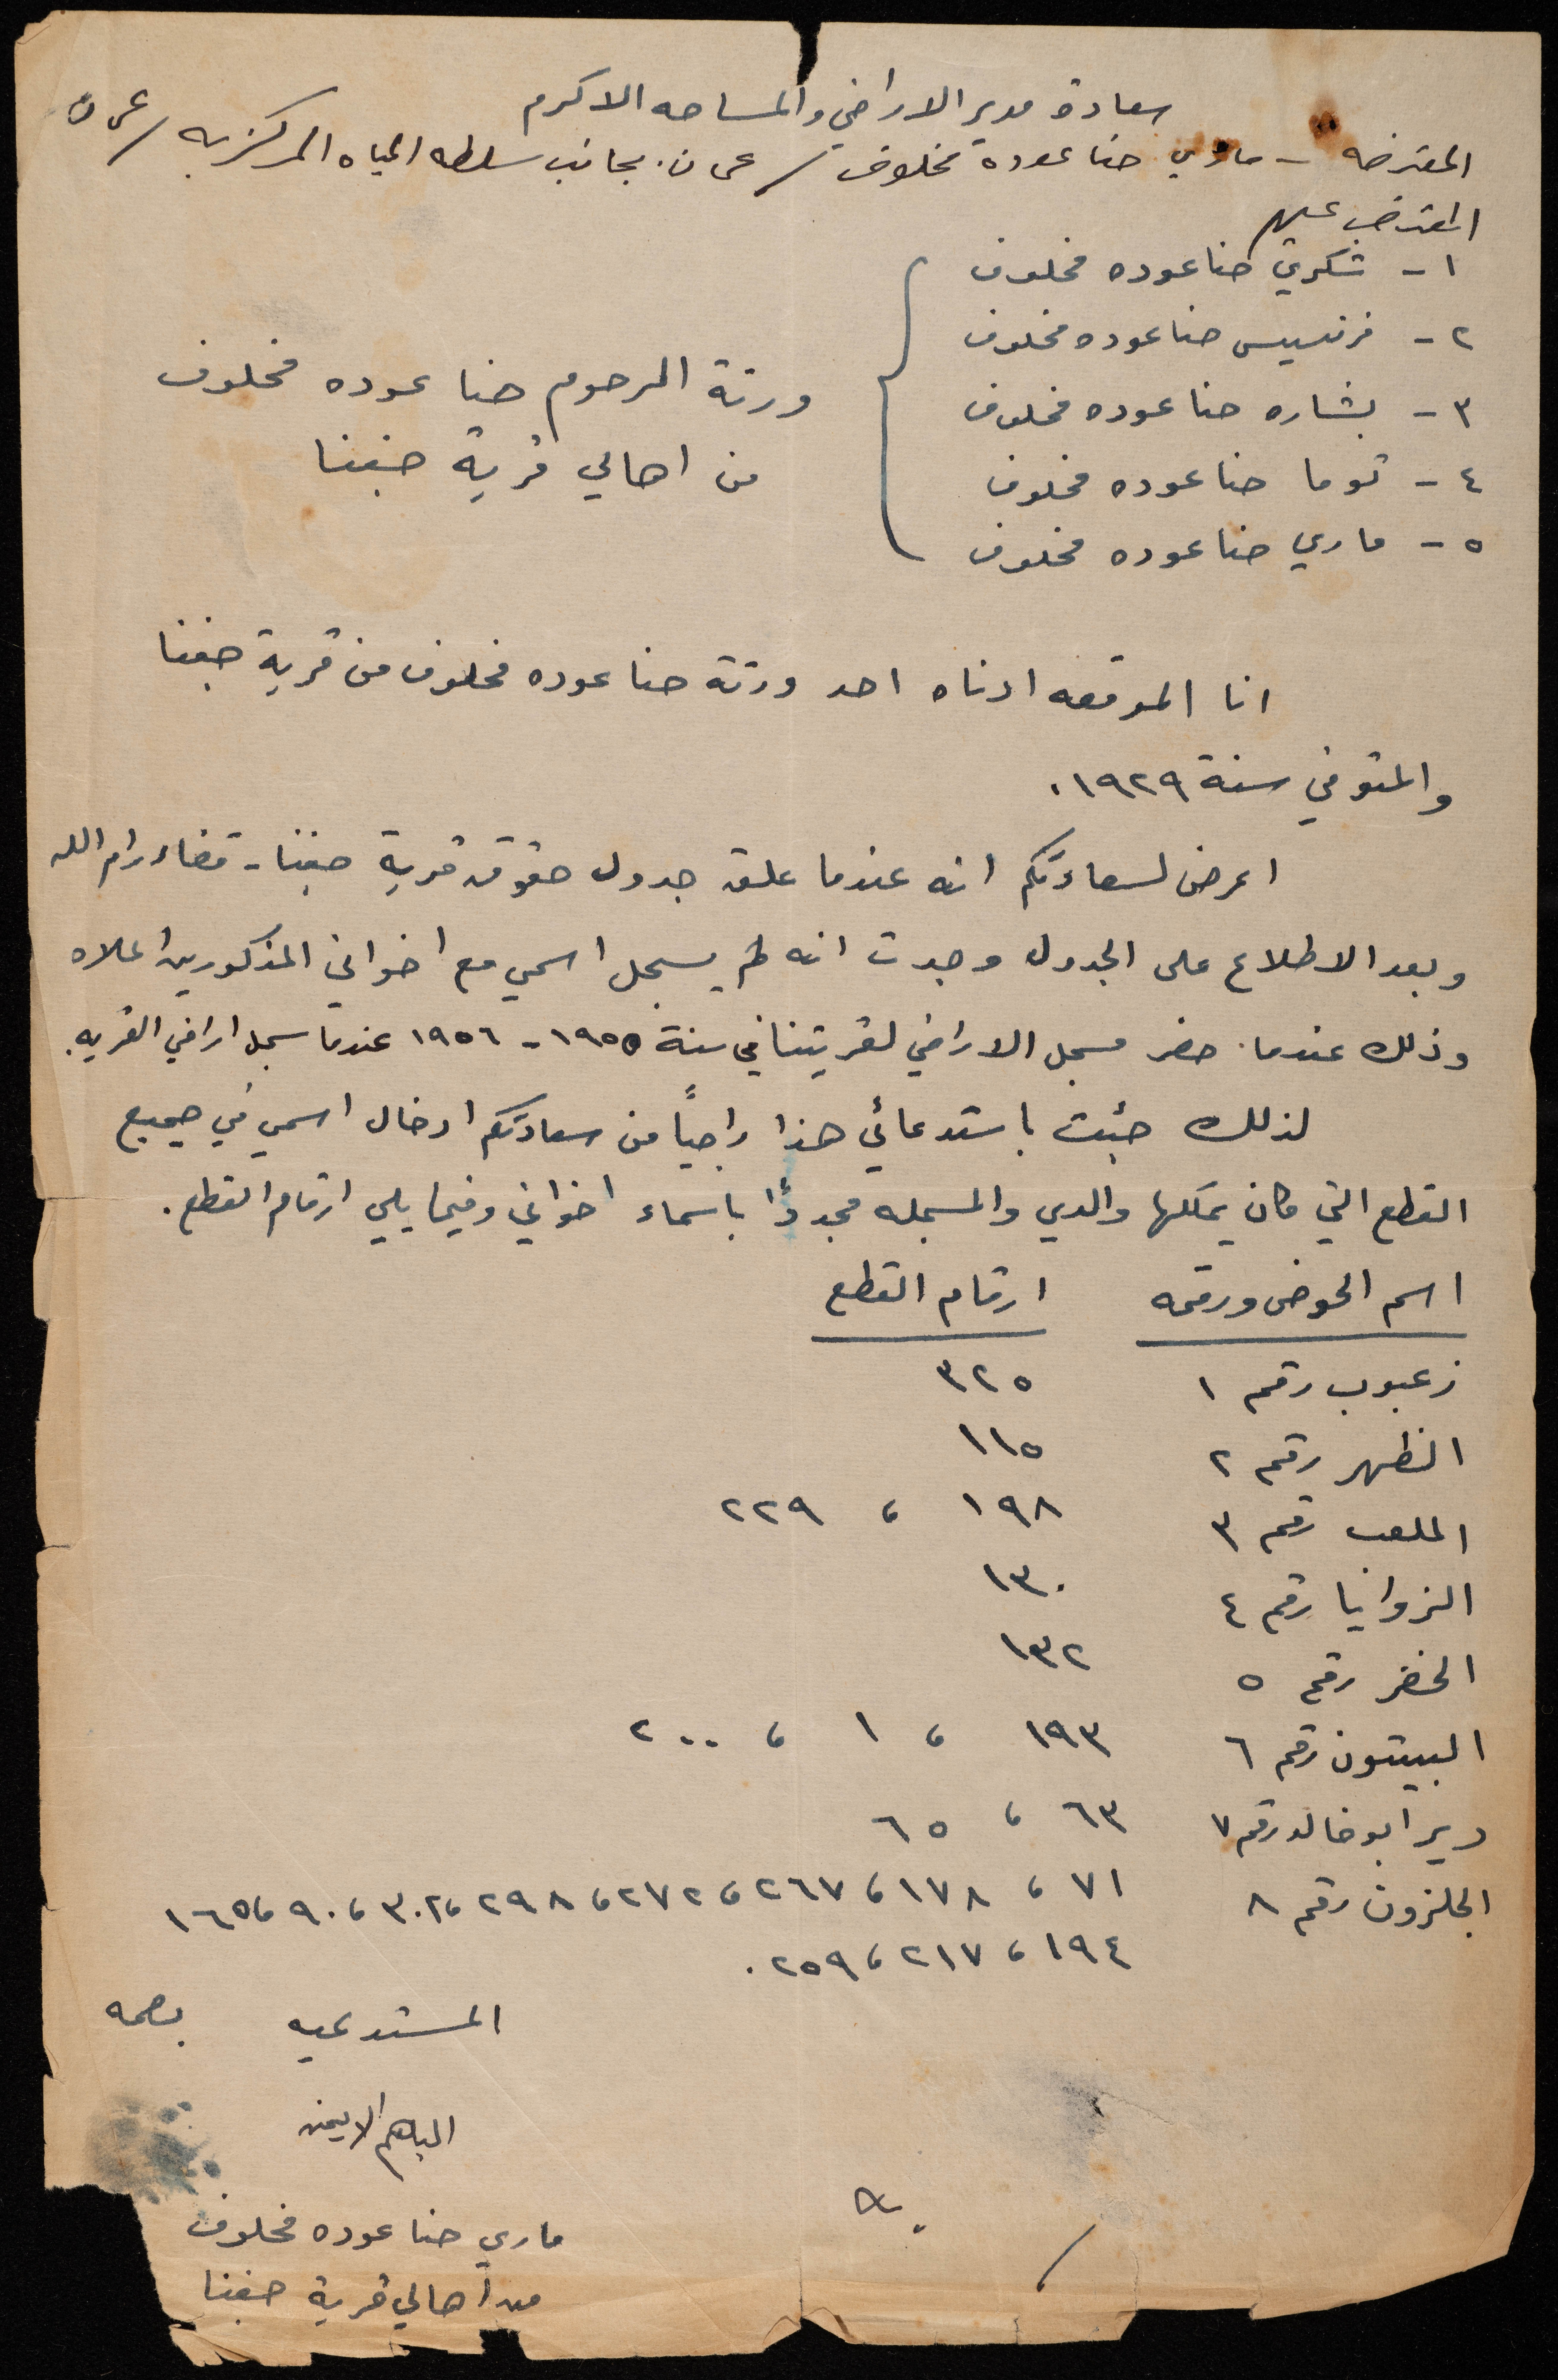 سعادة مدير الاراضي والمساحه الاكرم
المعترضه - ماري حنا عوده مخلوف / عمان. بجانب سلطه المياه المركزيه / عمان
المعترض عليهم
١ - شكري حنا عوده مخلوف
٢ - فرنسيس حنا عوده مخلوف
٣ - بشاره حنا عوده مخلوف
٤ - توما حنا عوده مخلوف
٥ - ماري حنا عوده مخلوف
ورثة المرحوم حنا عوده مخلوف
من اهالي قرية جفنا
انا الموقعه ادناه احد ورثة حنا عوده مخلوف من قرية جفنا
والمتوفي سنة ١٩٢٩.
اعرض لسعادتكم انه عندما علق جدول حقوق قرية جفنا - قضاء رام الله
وبعد الاطلاع على الجدول وجدت انه لم يسجل اسمي مع اخواني المذكورين اعلاه
وذلك عندما حضر مسجل الاراضي لقريتنا في سنة ١٩٥٥ - ١٩٥٦ عندما سجل اراضي القريه.
لذلك جئت باستدعائي هذا راجياً من سعادتكم ادخال اسمي في جميع
القطع التي كان يمتلكها والدي والمسجله مجددًا باسماء اخواني وفيما يلي ارقام القطع.
اسم الحوض ورقمه ارقام القطع
زعبوب رقم ١ ٣٢٥
الظهر رقم ٢ ١١٥
الملعب رقم ٣ ١٩٨ ، ٢٢٩
الزوانيا رقم ٤ ١٣٠
الخضر رقم ٥ ١٣٢
البيتون رقم ٦ ١٩٣ ، ١ ، ٢٠٠
دير ابو خالد رقم ٧ ٦٣ ، ٦٥
الجلزون رقم ٨ ٧١ ، ١٧٨ ، ٢٦٧ ، ٢٧٢ ، ٢٩٨ ، ٣٠٢ ، ٩٠ ، ١٦٥
١٩٤ ، ٢١٧ ، ٢٥٩.
المستدعيه بصمه
الباهم الايمن
ماري حنا عوده مخلوف
من اهالي قرية جفنا